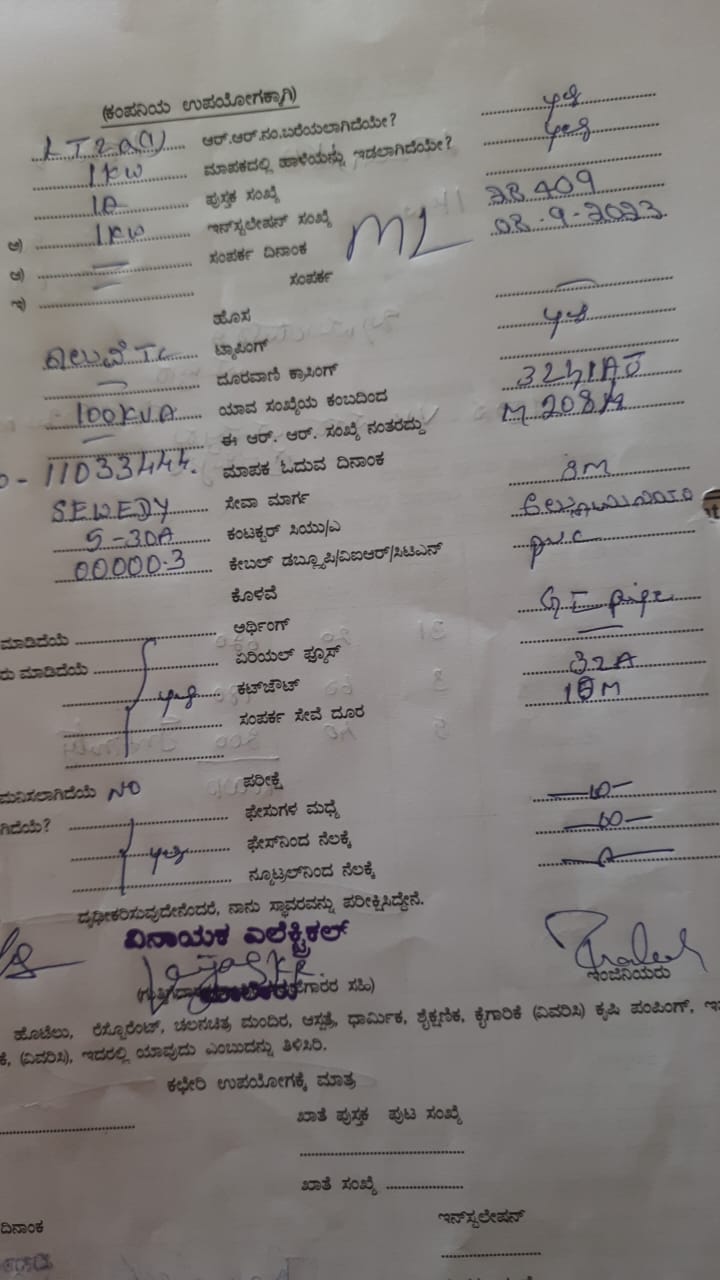 (ಕಂಪನಿಯ ಉಪಯೋಗಕ್ಕಾಗಿ)
LT2a(1) ಆರ್.ಆರ್.ನಂ.ಬರೆಯಲಾಗಿದೆಯೇ? yes
1KW ಮಾಪಕದಲ್ಲಿ ಹಾಳೆಯನ್ನು ಇಡಲಾಗಿದೆಯೇ? yes
1A ಪುಸ್ತಕ ಸಂಖ್ಯೆ
ಅ) 1KW ಇನ್‌ಸ್ಟಲೇಷನ್ ಸಂಖ್ಯೆ ML 28409
ಆ) ಸಂಪರ್ಕ ದಿನಾಂಕ 08-9-2023
ಇ) ಸಂಪರ್ಕ
ಹೊಸ
TC ಟ್ಯಾಪಿಂಗ್ yes
ದೂರವಾಣಿ ಕ್ರಾಸಿಂಗ್
100KVA ಯಾವ ಸಂಖ್ಯೆಯ ಕಂಬದಿಂದ
ಈ ಆರ್. ಆರ್. ಸಂಖ್ಯೆ ನಂತರದ್ದು
11033444. ಮಾಪಕ ಓದುವ ದಿನಾಂಕ
SEWEDY ಸೇವಾ ಮಾರ್ಗ 8M
5-30A ಕಂಟಕ್ಟರ್ ಸಿಯು/ಎ
00000.3 ಕೇಬಲ್ ಡಬ್ಲ್ಯೂಪಿ/ವಿಐಆರ್/ಸಿಟಿಎನ್ PVC
ಕೊಳವೆ
ಮಾಡಿದೆಯೆ ಅರ್ಥಿಂಗ್ GI pipe
ರು ಮಾಡಿದೆಯೆ ಏರಿಯಲ್ ಫ್ಯೂಸ್
yes ಕಟ್‌ಔಟ್ 32A
ಸಂಪರ್ಕ ಸೇವೆ ದೂರ 18M
ಮನಿಸಲಾಗಿದೆಯೆ NO ಪರೀಕ್ಷೆ
ಗಿದೆಯೆ? ಫೇಸುಗಳ ಮಧ್ಯೆ
yes ಫೇಸ್‌ನಿಂದ ನೆಲಕ್ಕೆ
ನ್ಯೂಟ್ರಲ್‌ನಿಂದ ನೆಲಕ್ಕೆ
ದೃಢೀಕರಿಸುವುದೇನೆಂದರೆ, ನಾನು ಸ್ಥಾವರವನ್ನು ಪರೀಕ್ಷಿಸಿದ್ದೇನೆ.
ವಿನಾಯಕ ಎಲೆಕ್ಟ್ರಿಕಲ್
ಸಹಿ) ಇಂಜಿನಿಯರು
ಹೊಟೆಲು, ರೆಸ್ಟೊರೆಂಟ್, ಚಲನಚಿತ್ರ ಮಂದಿರ, ಆಸ್ಪತ್ರೆ, ಧಾರ್ಮಿಕ, ಶೈಕ್ಷಣಿಕ, ಕೈಗಾರಿಕೆ (ವಿವರಿಸಿ) ಕೃಷಿ ಪಂಪಿಂಗ್,
ಕೆ, (ವಿವರಿಸಿ), ಇದರಲ್ಲಿ ಯಾವುದು ಎಂಬುದನ್ನು ತಿಳಿಸಿರಿ.
ಕಛೇರಿ ಉಪಯೋಗಕ್ಕೆ ಮಾತ್ರ
ಖಾತೆ ಪುಸ್ತಕ ಪುಟ ಸಂಖ್ಯೆ
ಖಾತೆ ಸಂಖ್ಯೆ
ದಿನಾಂಕ ಇನ್‌ಸ್ಟಲೇಷನ್